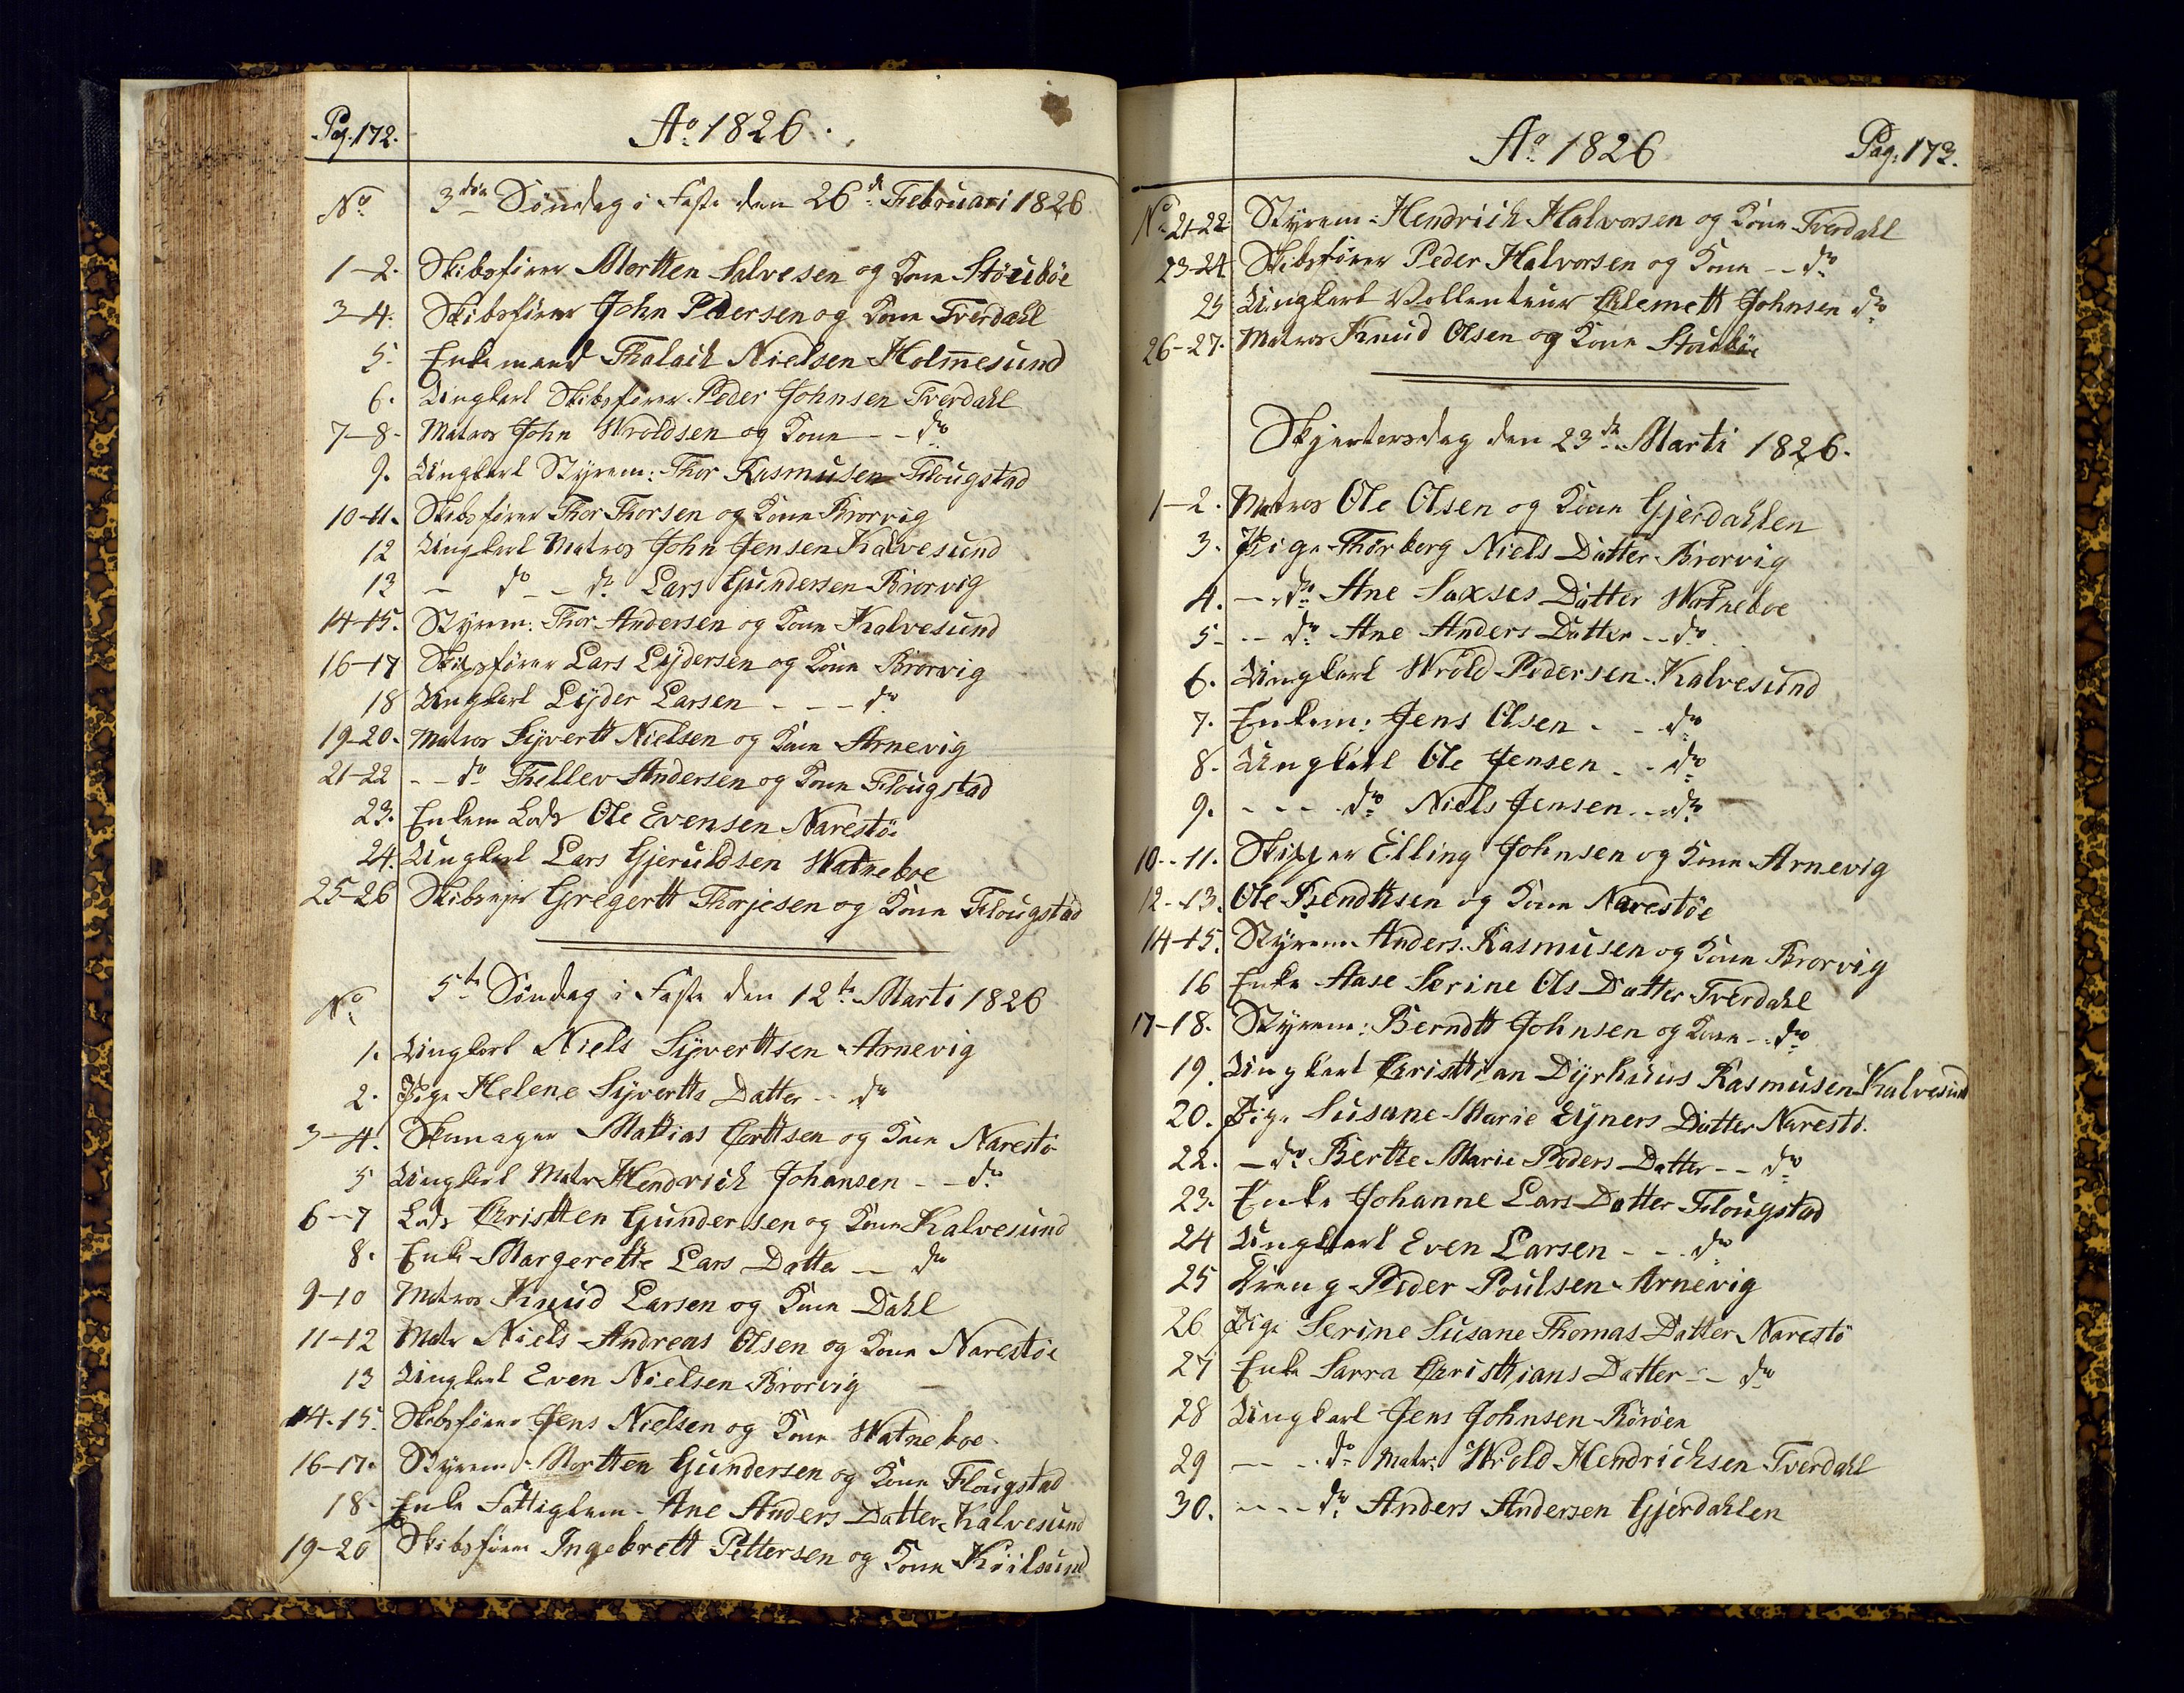 Pag. 172.
Ao 1826.
No
3die Søndag i Faste den 26de Februari 1826
1-2. Skibsfører Mortten Salvesen og Kone Stöuböe
3-4. Skibsfører John Pedersen og Kone Tverdahl
5. Enkemand Thalach Nielsen Holmesund
6. Ungkarl Skibsfører Peder Johnsen Tverdahl
7-8. Matros John Wroldsen og Kone - - do
9. Ungkarl Styrem: Thor Rasmusen Flougstad
10-11. Skibsfører Thor Thorsen og Kone Brorvig
12 Ungkarl Matros John Jensen Kalvesund
13 - do - - do Lars Gundersen Brorvig
14-15. Styrem: Thor Andersen og Kone Kalvesund
16-17 Skibsfører Lars Lydersen og Kone Brorvig
18 Ungkarl Lyder Larsen - - - do
19-20. Matros Syvertt Nielsen og Kone Arnevig
21-22 - - do Thellev Andersen og Kone Flougstad
23. Enkem Lods Ole Evensen Narestöe
24. Ungkarl Lars Gjeruldsen Watneboe
25-26 Gregertt Thorjesen og Kone Flougstad
No
5te Søndag i Faste den 12te Marti 1826
1. Ungkarl Niels Syverttsen Arnevig
2. Pige Helene Syvertts Datter - - do
3-4. Skomager Mattias Corttsen og Kone Narestö
5 Ungkarl Matr Hendrich Johansen - - do
6-7 Lods Christten Gundersen og Kone Kalvesund
8. Enke Margerette Lars Datter - do
9-10 Matros Knud Larsen og Kone Dahl
11-12 Matr Niels Andreas Olsen og Kone Narestöe
13 Ungkarl Even Nielsen Brorvig
14-15. Skibsfører Jens Nielsen og Kone Watneboe
16-17. Styrem: Mortten Gundersen og Kone Flougstad
18. Enke Fattiglem Ane Anders Datter Kalvesund
19-20 Skibsfører Ingebrett Pettersen og Kone Kiilsund
Ao 1826
Pag: 173.
No 21-22 Styrem: Hendrich Halvorsen og Kone Tverdahl
23-24 Skibsfører Peder Halvorsen og Kone - - do
25 Ungkarl Vollenteur Clemett Johnsen do
26-27. Matros Knud Olsen og Kone Stauböe
Skjertorsdag den 23de Marti 1826.
1-2. Matros Ole Olsen og Kone Gjerdahlen
3. Pige Thorborg Niels Datter Brorvig
4. - do Ane Saxses Datter Watneboe
5 - - do Ane Anders Datter - - do
6. Ungkarl Wrold Pedersen Kalvesund
7. Enkem: Jens Olsen - - do
8. Ungkarl Ole Jensen - - do
9. - - - do Niels Jensen - - do
10-11. Skipper Elling Johnsen og Kone Arnevig
12-13. Ole Bendttsen og Kone Narestöe
14-15. Styrem Anders Rasmusen og Kone Brorvig
16 Enke Aase Serine Ols Datter Tverdahl
17-18. Styrem: Berndtt Johnsen og Kone - - do
19. Ungkarl Christtian Dyrhuus Rasmusen Kalvesund
20. Pige Susane Marie Eyners Datter Narestö
22. - do Bertte Marie Peders Datter - - do
23. Enke Johanne Lars Datter Flougstad
24 Ungkarl Even Larsen - - do
25 Dreng Peder Poulsen Arnevig
26 Pige Serine Susane Thomas Datter Narestö
27 Enke Sarra Christtians Datter - - do
28 Ungkarl Jens Johnsen Röröen
29 - - - do Matr: Wrold Hendrichsen Tverdahl
30. - - - do Anders Andersen Gjerdahlen